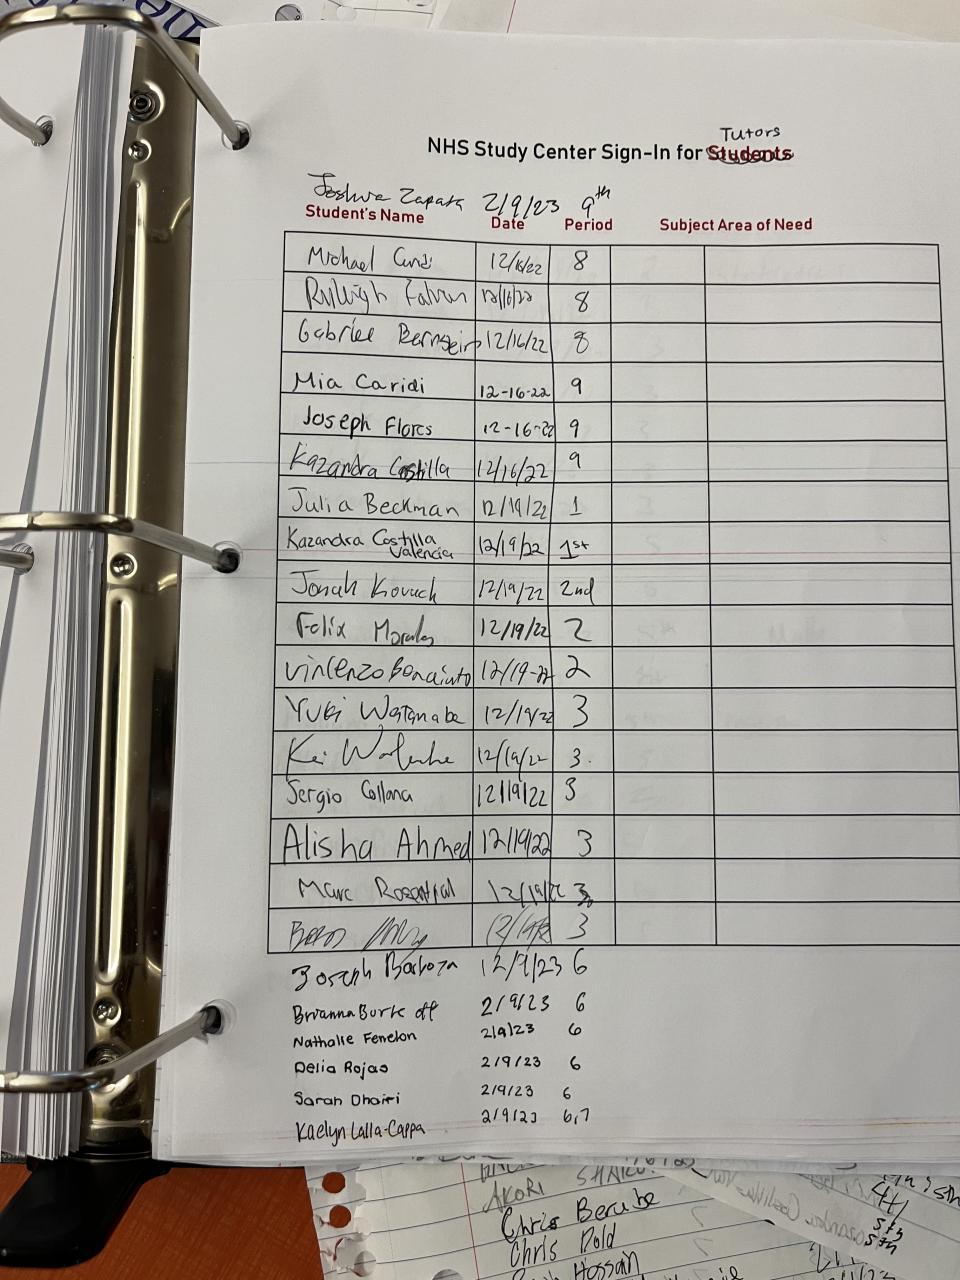 Tutors
NHS Study Center Sign-In for Students
Joshua Zapata 2/9/23 9th
Student's Name Date Period Subject Area of Need
Michael 12/16/22 8
Ryleigh 12/16/22 8
Gabriel Bernstein 12/16/22 8
Mia Caridi 12-16-22 9
Joseph Flores 12-16-22 9
Kazandra Costilla 12/16/22 9
Julia Beckman 12/19/22 1
Kazandra Costilla Valencia 12/19/22 1st
Jonah Kovach 12/19/22 2nd
Felix Morales 12/19/22 2
Vincenzo 12/19-22 2
Yuki Watanabe 12/19/22 3
Kei 12/19/22 3.
Sergio Collana 12/19/22 3
Alisha Ahmed 12/19/22 3
Marc Rosenthal 12/19/22 3
3
Joseph Barboza 12/9/23 6
Brianna 2/9/23 6
Nathalie Fenelon 2/9/23 6
Delia Rojas 2/9/23 6
Sarah Dhairi 2/9/23 6
Kaelyn Lalla-Cappa 2/9/23 6,7
AKORI
Chris Berube
Chris Dold
Hossain